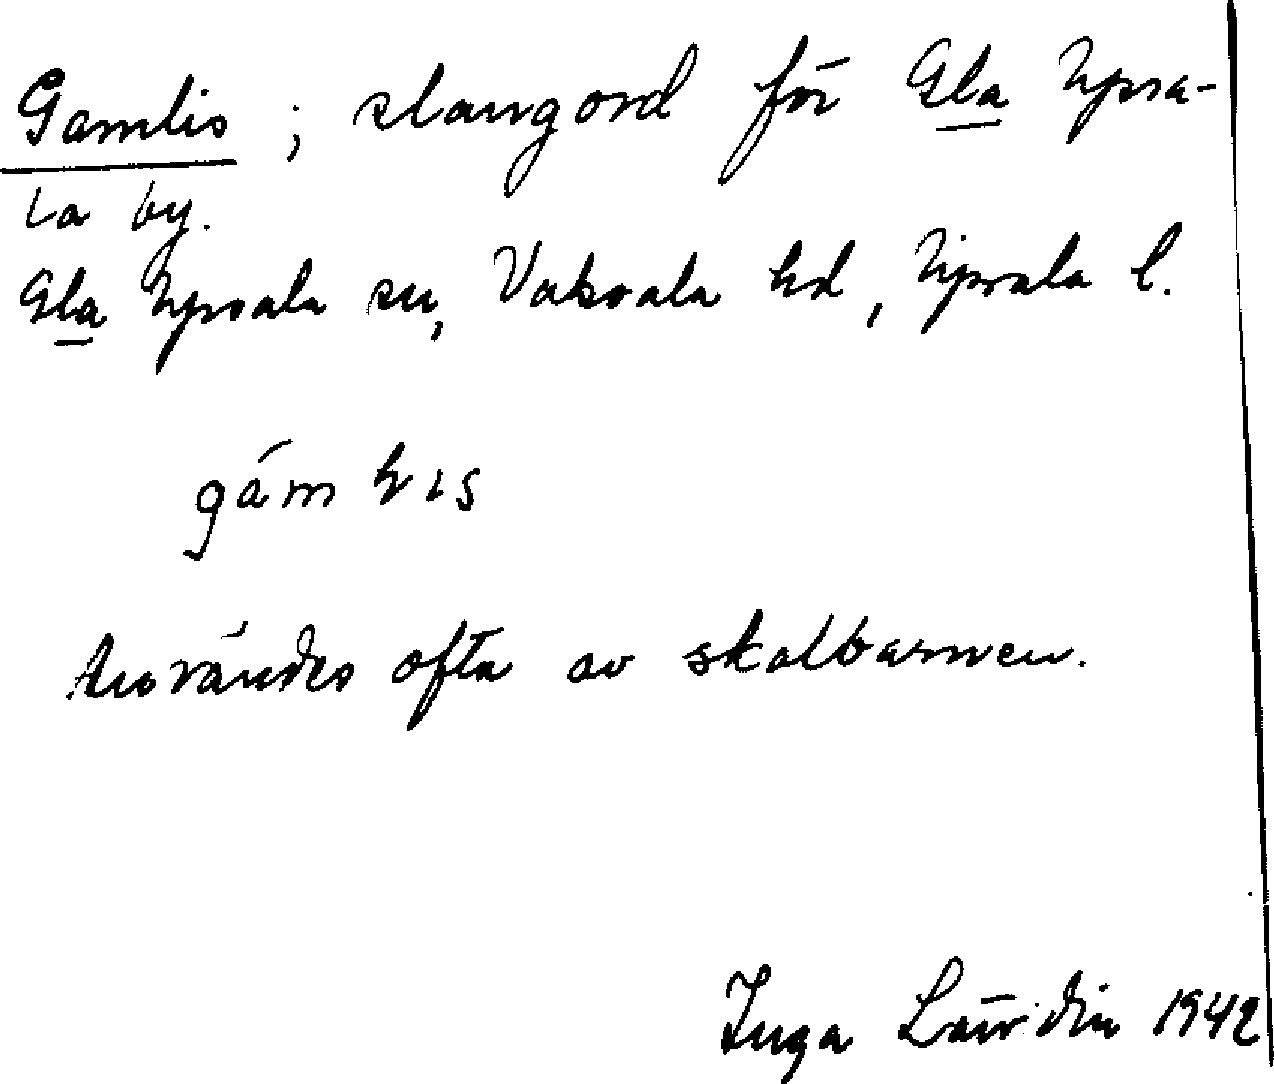 Gamlis ; slangord för Gla Upsa-
la by.
Gla Upsala sn, Vaksala hd, Upsala l.
användes ofta av skolbarnen.
Inga 1942